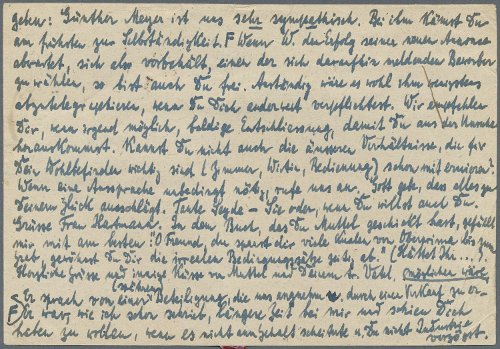 gehn: Günther Meyer ist uns sehr sympathisch. Bei ihm kämst Du
am frühsten zur Selbständigkeit. F Wenn W. den Erfolg seiner neuen Annonce
abwartet, sich also vorbehält, einen der sich daraufhin meldenden Bewerber
zu wählen, so bist auch Du frei. Anständig wäre es wohl ihm wenigstens
abzutelegraphieren, wenn Du Dich anderweit verpflichtest. Wir empfehlen
Dir, wenn irgend möglich, baldige Entschliessung, damit Du aus der Unruhe
herauskommst. Kannst Du nicht auch die äusseren Verhältnisse, die für
Dein Wohlbefinden wichtig sind (Zimmer, Wirtin, Bedienung) schon mit eruieren?
Wenn eine Aussprache unbedingt nötig, rufe uns an. Gott geb, dass alles zu
Deinem Glück ausschlägt. Tante Leude – Sie oder, wenn Du willst auch Du.
Grüsse Frau Hartmann. In dem Buch, das Du Muttel geschickt hast, gefällt
mir mit am besten: "O Freund, du sparst dir viele Mucker von Obergrima bis zum
Grab, gewöhnst Du Dir die zwecklosen Bedingungssätze zeitig ab." (Hättest Du ...).
Herzliche Grüsse und innige Küsse von Muttel und Deinem tr. Vatel.
(mündlich) möglicher wäre
S Er sprach von einer Beteiligung, die uns angenehmer, durch einen Verkauf zu er-
F Er war, wie ich schon schrieb, längere Zeit bei mir und schien Dich
haben zu wollen, wenn es nicht am Gehalt scheiterte u. Du nicht
verzögst.